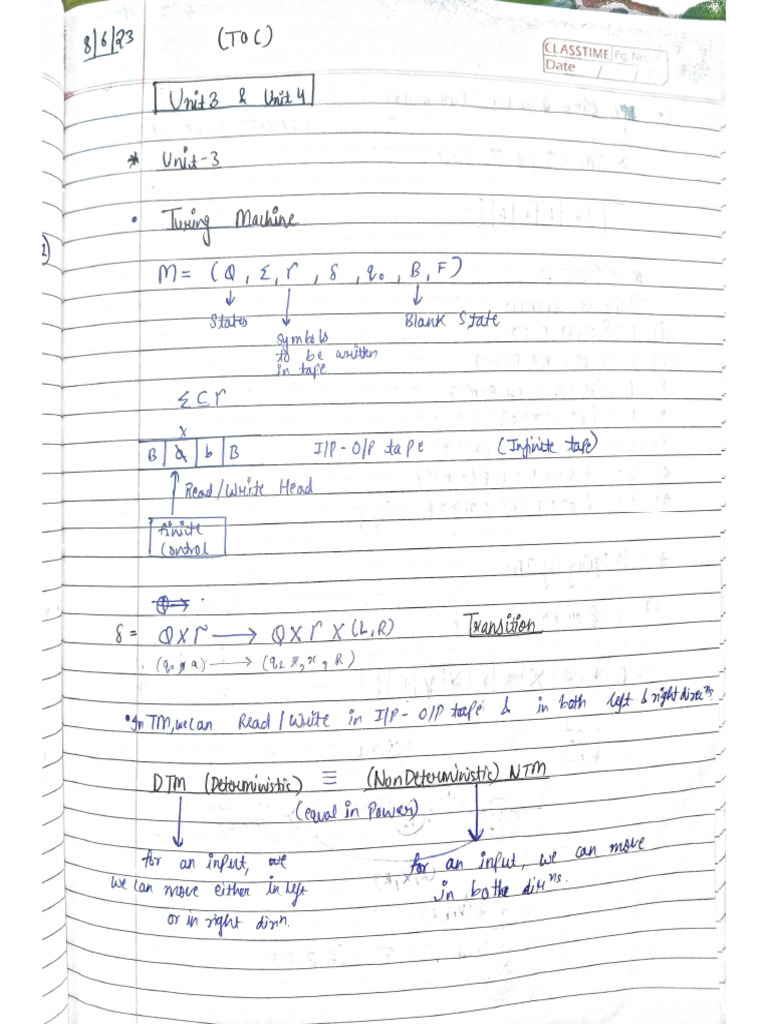 8/6/23 (TOC)
CLASSTIME Pg. No.
Date / /
Unit 3 & Unit 4
* Unit-3
• Turing Machine
M = (Q, Σ, Γ, δ, q₀, B, F)
States
Symbols
to be written
in tape
Blank State
Σ ⊂ Γ
x
B a b B I/P - O/P tape (Infinite tape)
Read/Write Head
finite
control
δ = Q X Γ → Q X Γ X (L, R) Transition
(q₀, a) → (q₁, x, R)
• In TM, we can Read/Write in I/P - O/P tape & in both left & right direcⁿˢ.
DTM (Deterministic) ≡ (Non Deterministic) NTM
(equal in Power)
for an input,
we can move either in left
or in right dirⁿ.
for an input, we can move
in both dirⁿˢ.